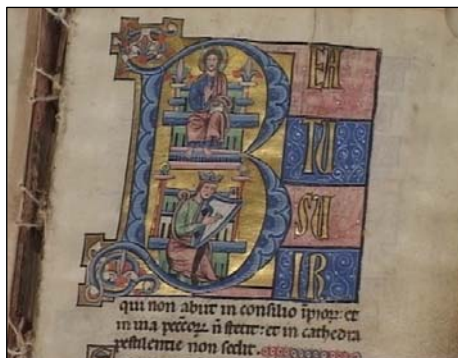 BEA
TU
SU
IR
qui non abiit in consilio īpioꝝ: et
in uia peccoꝝ n̄ stetit: et in cathedra
pestilentie non sedit.